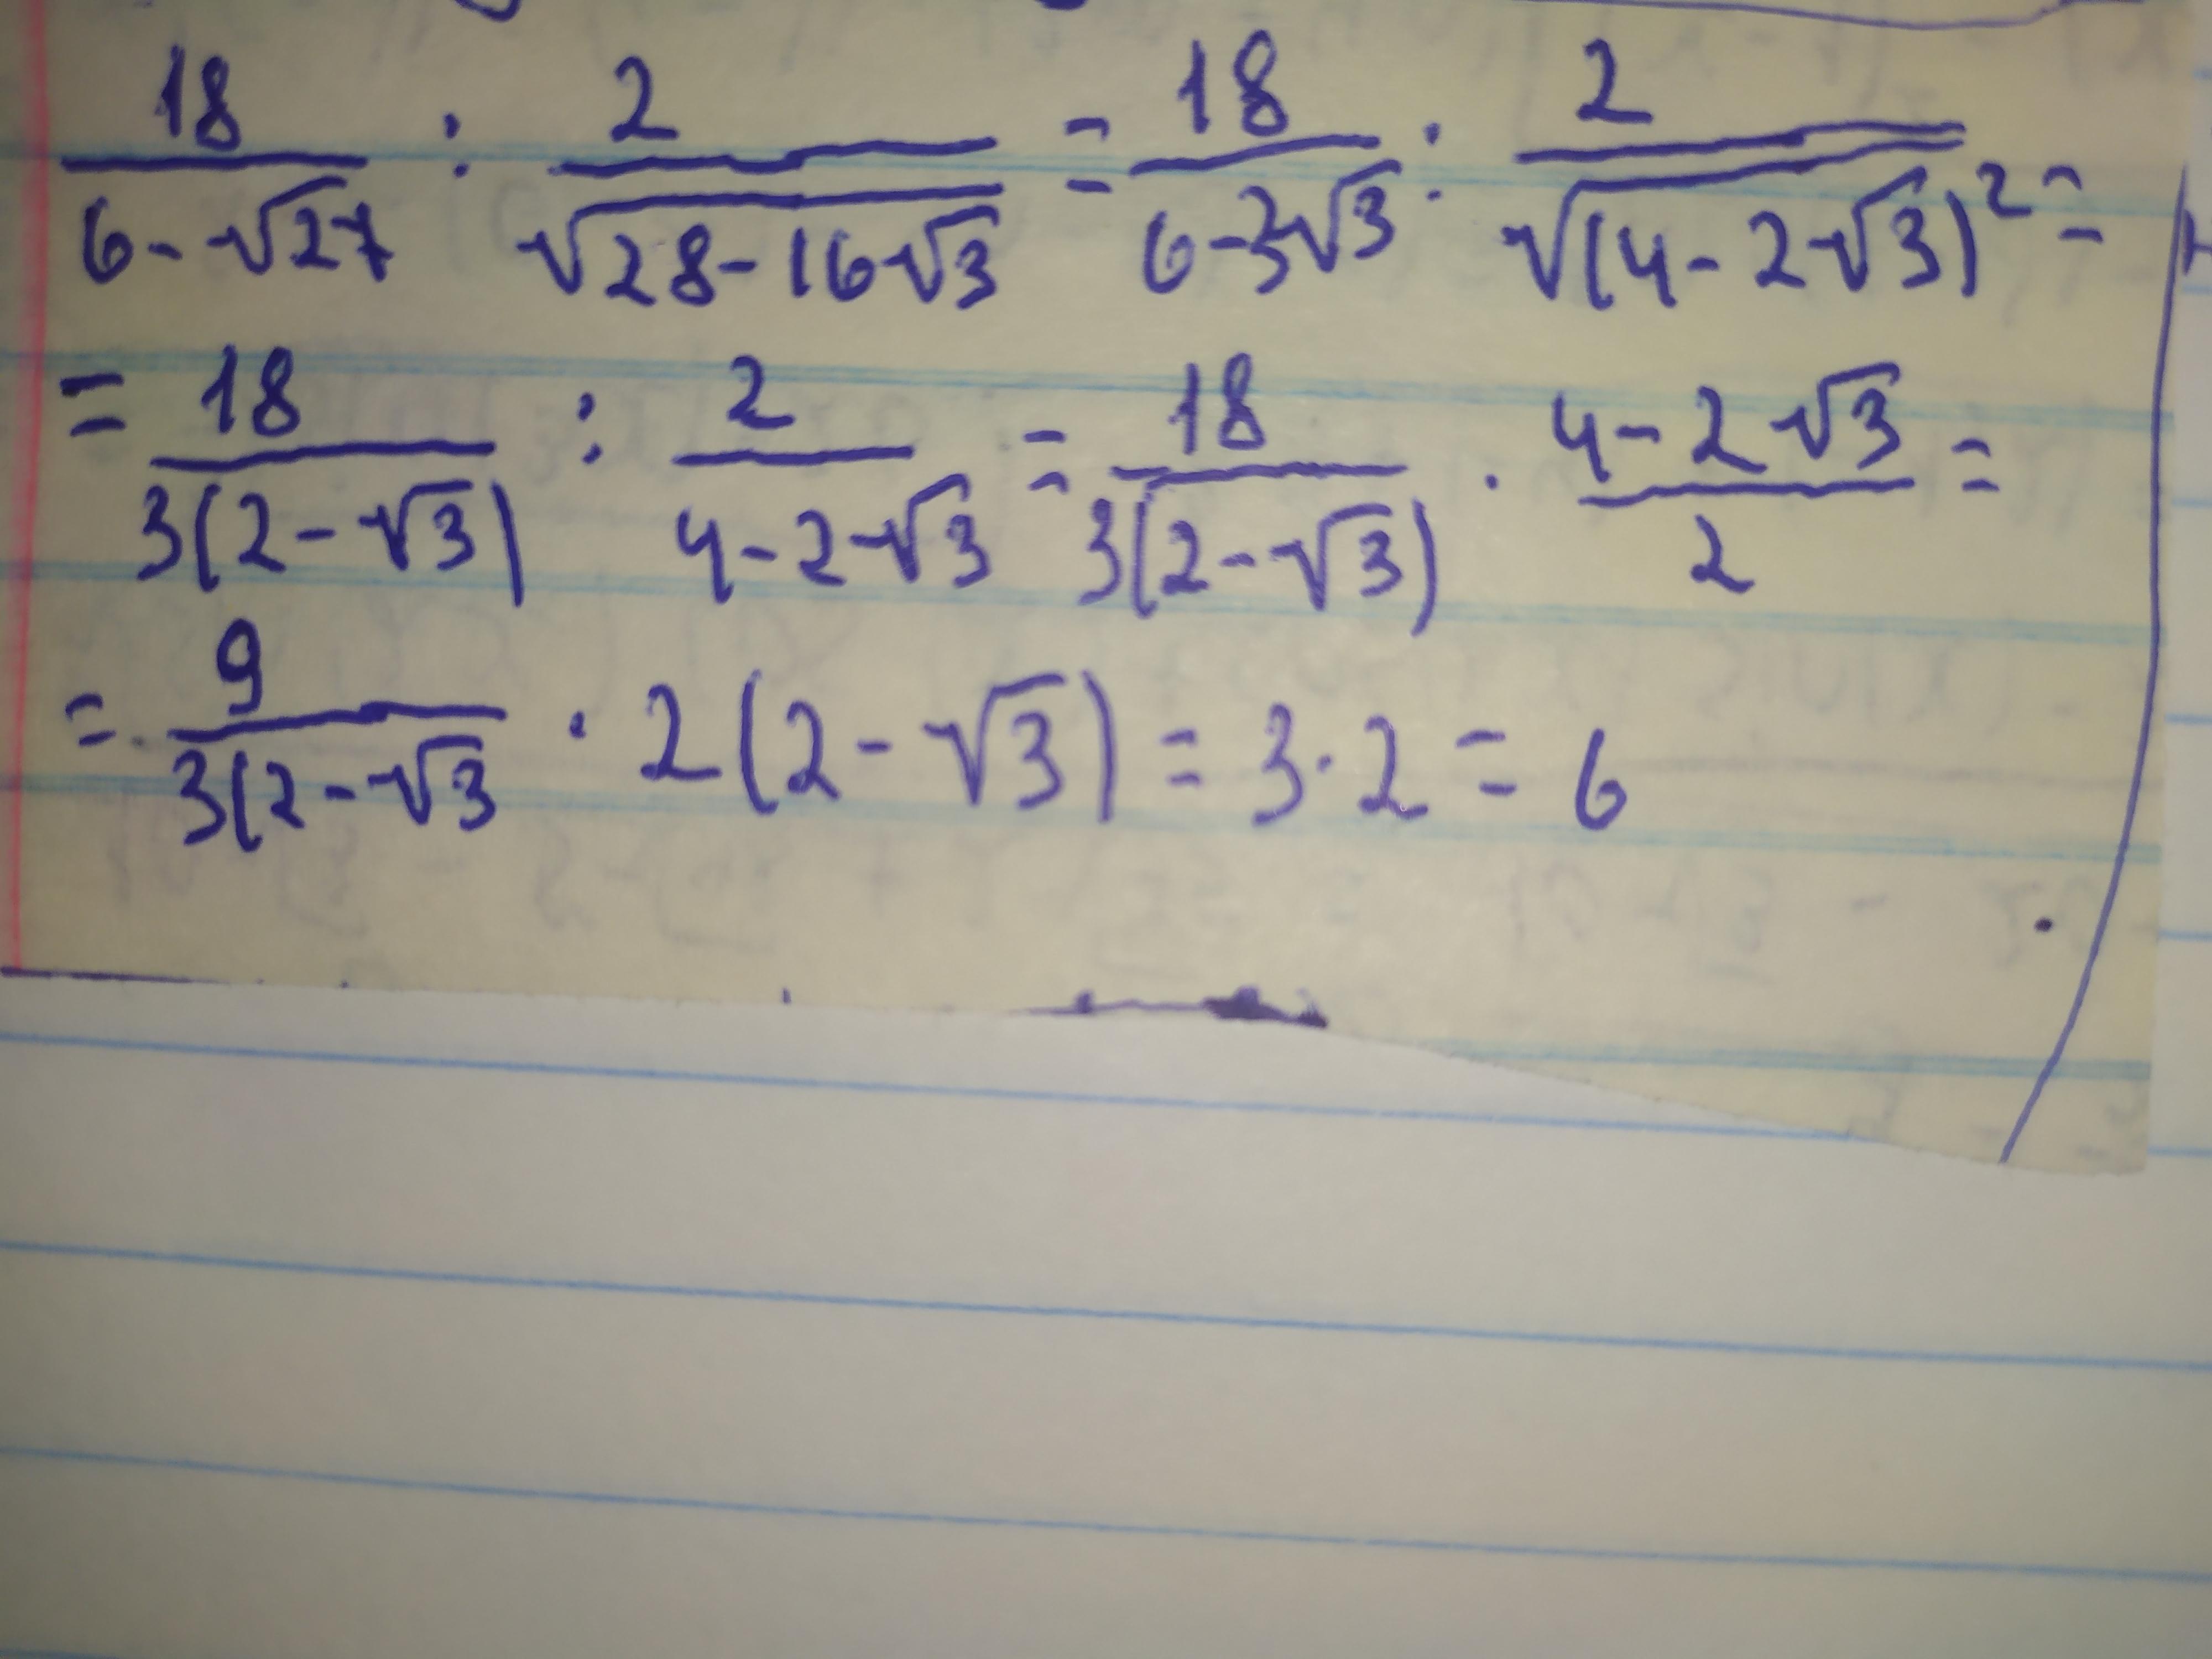 18/(6-√27) : 2/√(28-16√3) = 18/(6-3√3) : 2/√((4-2√3)²) =
= 18/(3(2-√3)) : 2/(4-2√3) = 18/(3(2-√3)) · (4-2√3)/2 =
= 9/(3(2-√3 · 2(2-√3) = 3·2 = 6